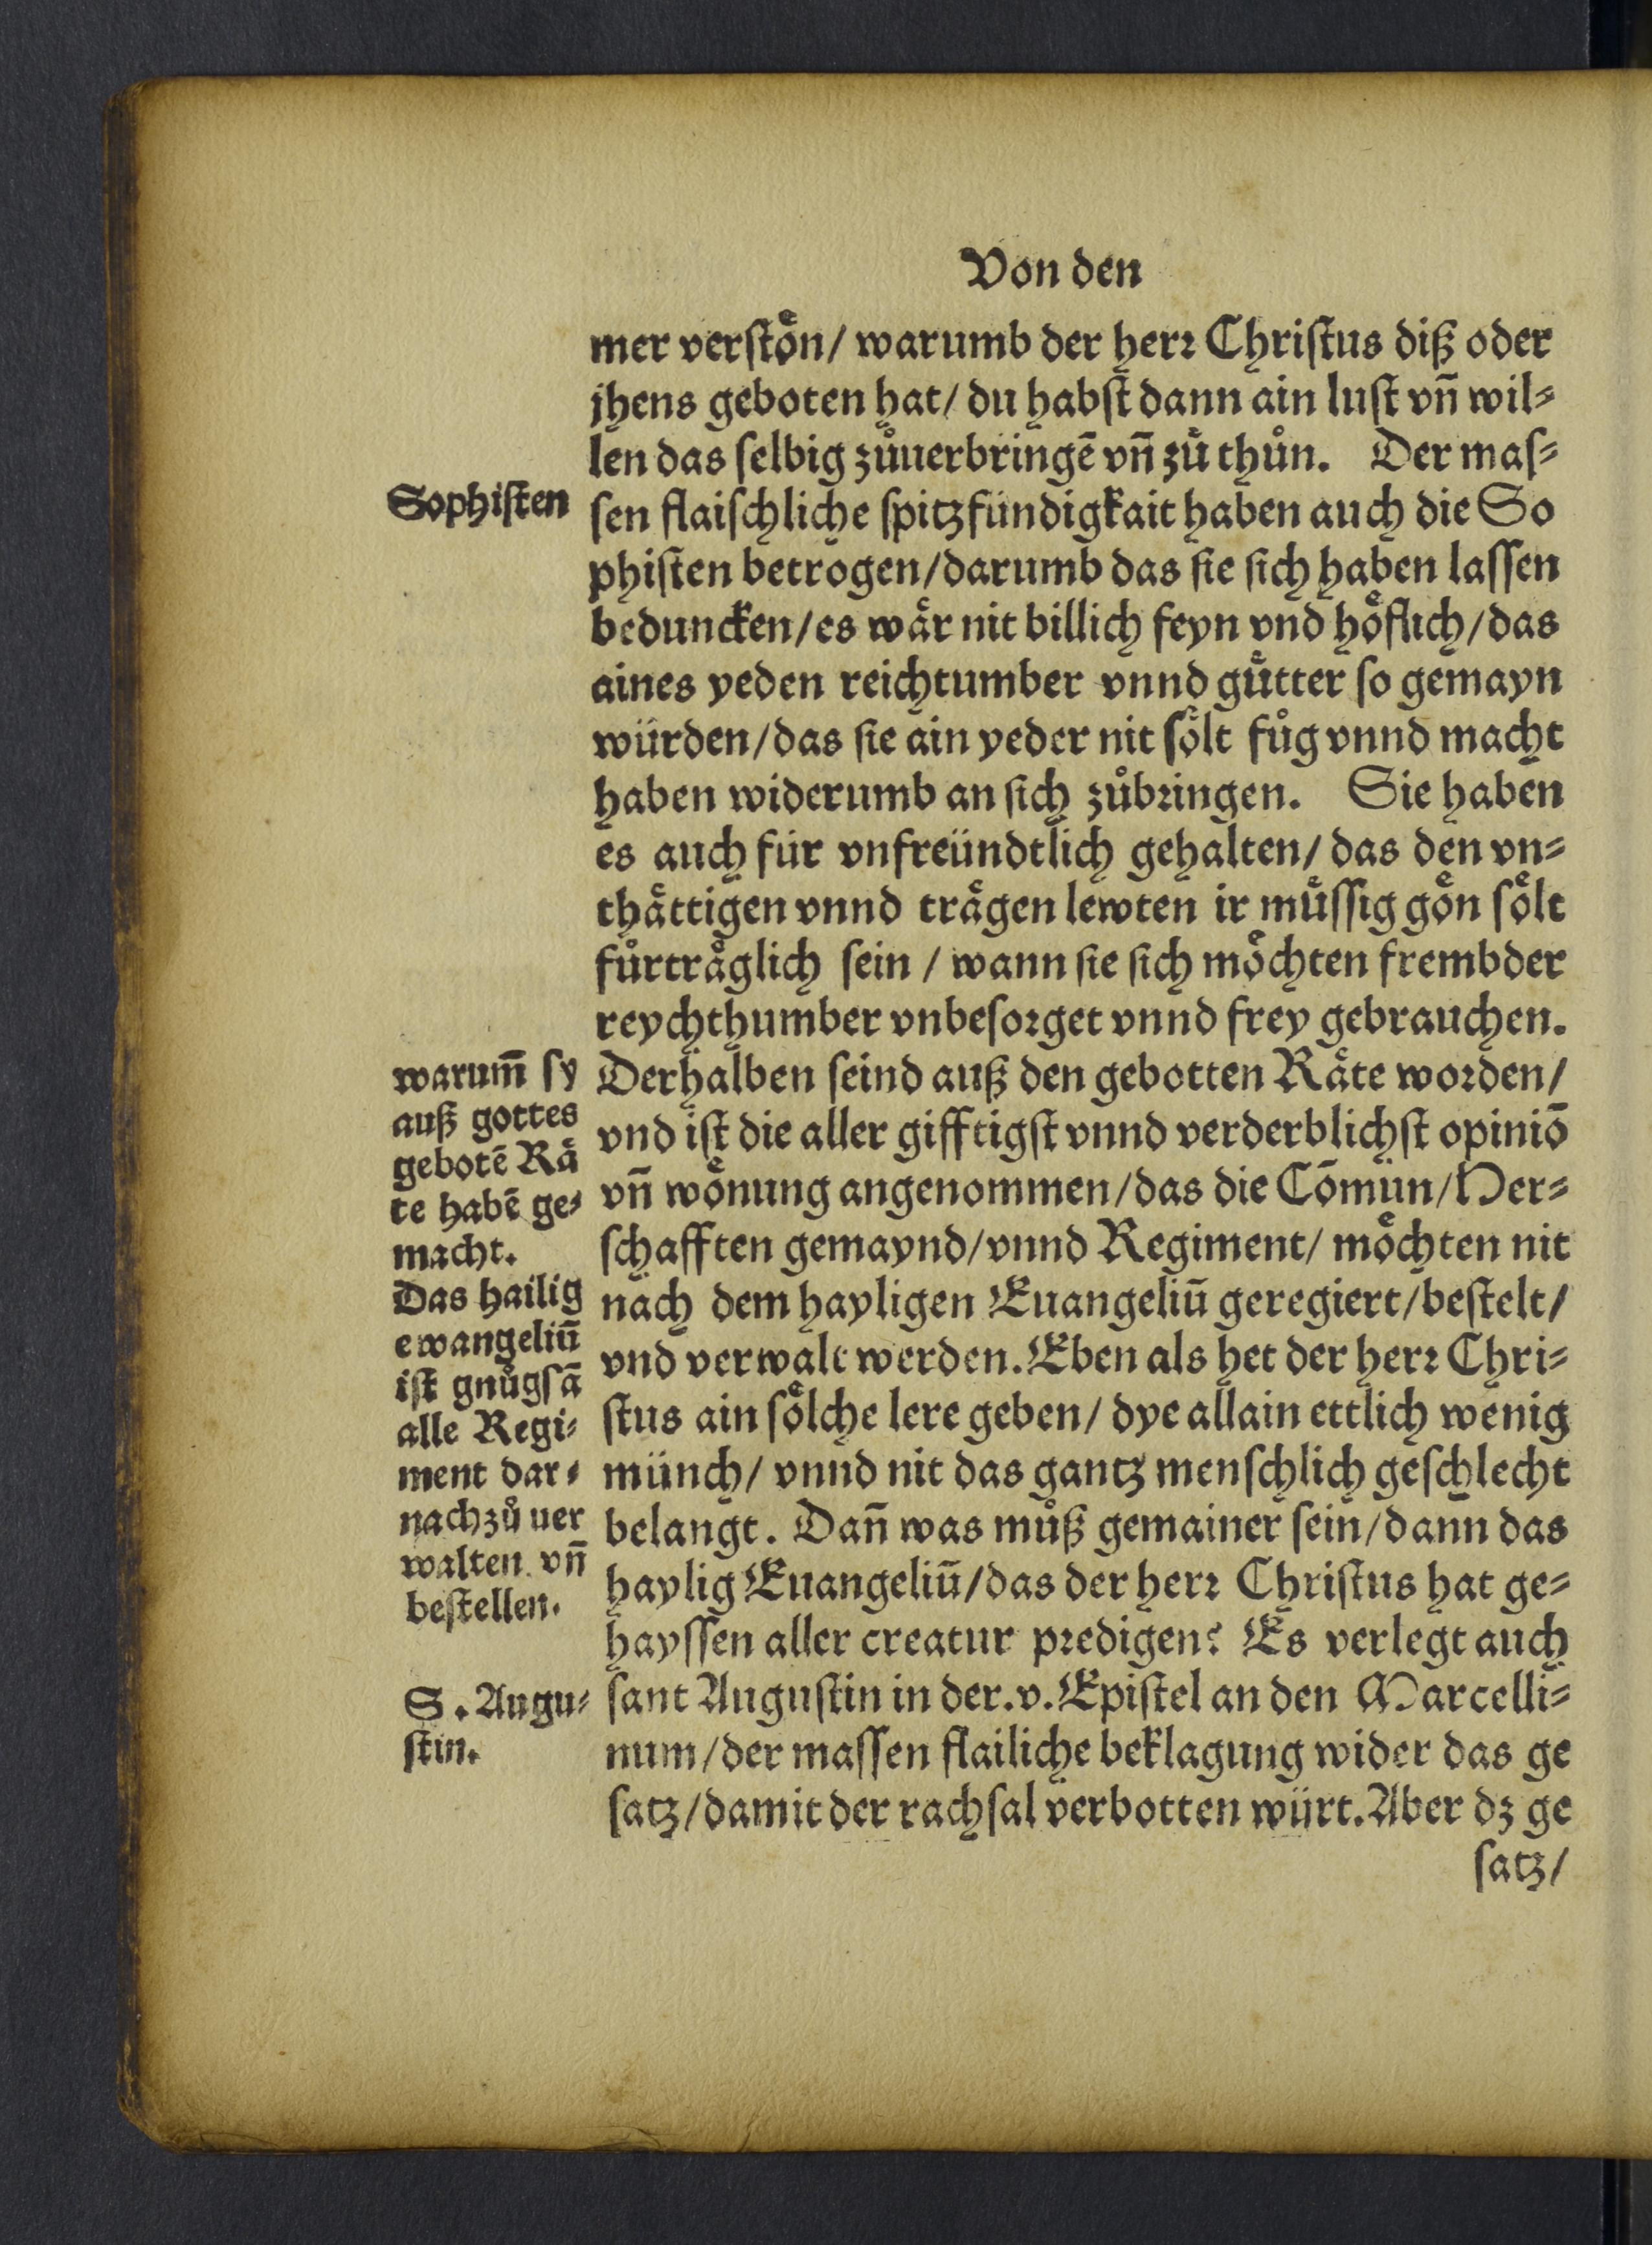 Von den
mer verstoͤn/ warumb der herꝛ Christus diß oder
jhens geboten hat/ du habst dann ain lust vn̄ wil⸗
len das selbig zůuerbringē vn̄ zů thůn. Der mas⸗
Sophisten
sen flaischliche spitzfündigkait haben auch die So
phisten betrogen/darumb das sie sich haben lassen
beduncken/es waͤr nit billich feyn vnd hoͤflich/das
aines yeden reichtumber vnnd guͤtter so gemayn
würden/das sie ain yeder nit soͤlt fůg vnnd macht
haben widerumb an sich zůbꝛingen. Sie haben
es auch für vnfreündtlich gehalten/ das den vn⸗
thaͤttigen vnnd traͤgen lewten ir muͤssig goͤn soͤlt
fůrtraͤglich sein / wann sie sich moͤchten frembder
reychthumber vnbesoꝛget vnnd frey gebrauchen.
Derhalben seind auß den gebotten Raͤte woꝛden/
vnd ist die aller gifftigst vnnd verderblichst opiniō
vn̄ woͤnung angenommen/das die Cōmün/Her⸗
schafften gemaynd/vnnd Regiment/ moͤchten nit
nach dem hayligen Euangeliū geregiert/bestelt/
vnd verwalt werden. Eben als het der herꝛ Chri⸗
stus ain soͤlche lere geben/ dye allain ettlich wenig
münch/ vnnd nit das gantz menschlich geschlecht
belangt. Dan̄ was můß gemainer sein/dann das
haylig Euangeliū/das der herꝛ Christus hat ge⸗
hayssen aller creatur pꝛedigen? Es verlegt auch
sant Augustin in der.v. Epistel an den Marcelli⸗
num/der massen flailiche beklagung wider das ge
satz/damit der rachsal verbotten würt. Aber dz ge
satz/
warum̄ sy
auß gottes
gebotē Raͤ
te habē ge⸗
macht.
Das hailig
ewangeliū
ist gnůgsā
alle Regi⸗
ment dar⸗
nachzů uer
walten vn̄
bestellen.
S. Augu⸗
stin.